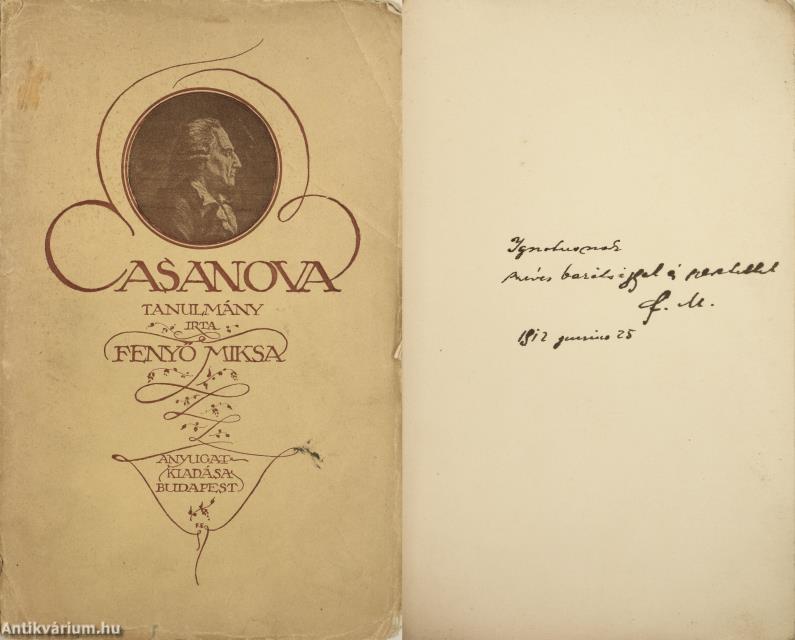 CASANOVA
TANULMÁNY
IRTA
FENYŐ MIKSA
A NYUGAT
KIADÁSA
BUDAPEST
Ignotusnak
szíves barátsággal és szeretettel
F. M.
1912 junius 25
Antikvárium.hu